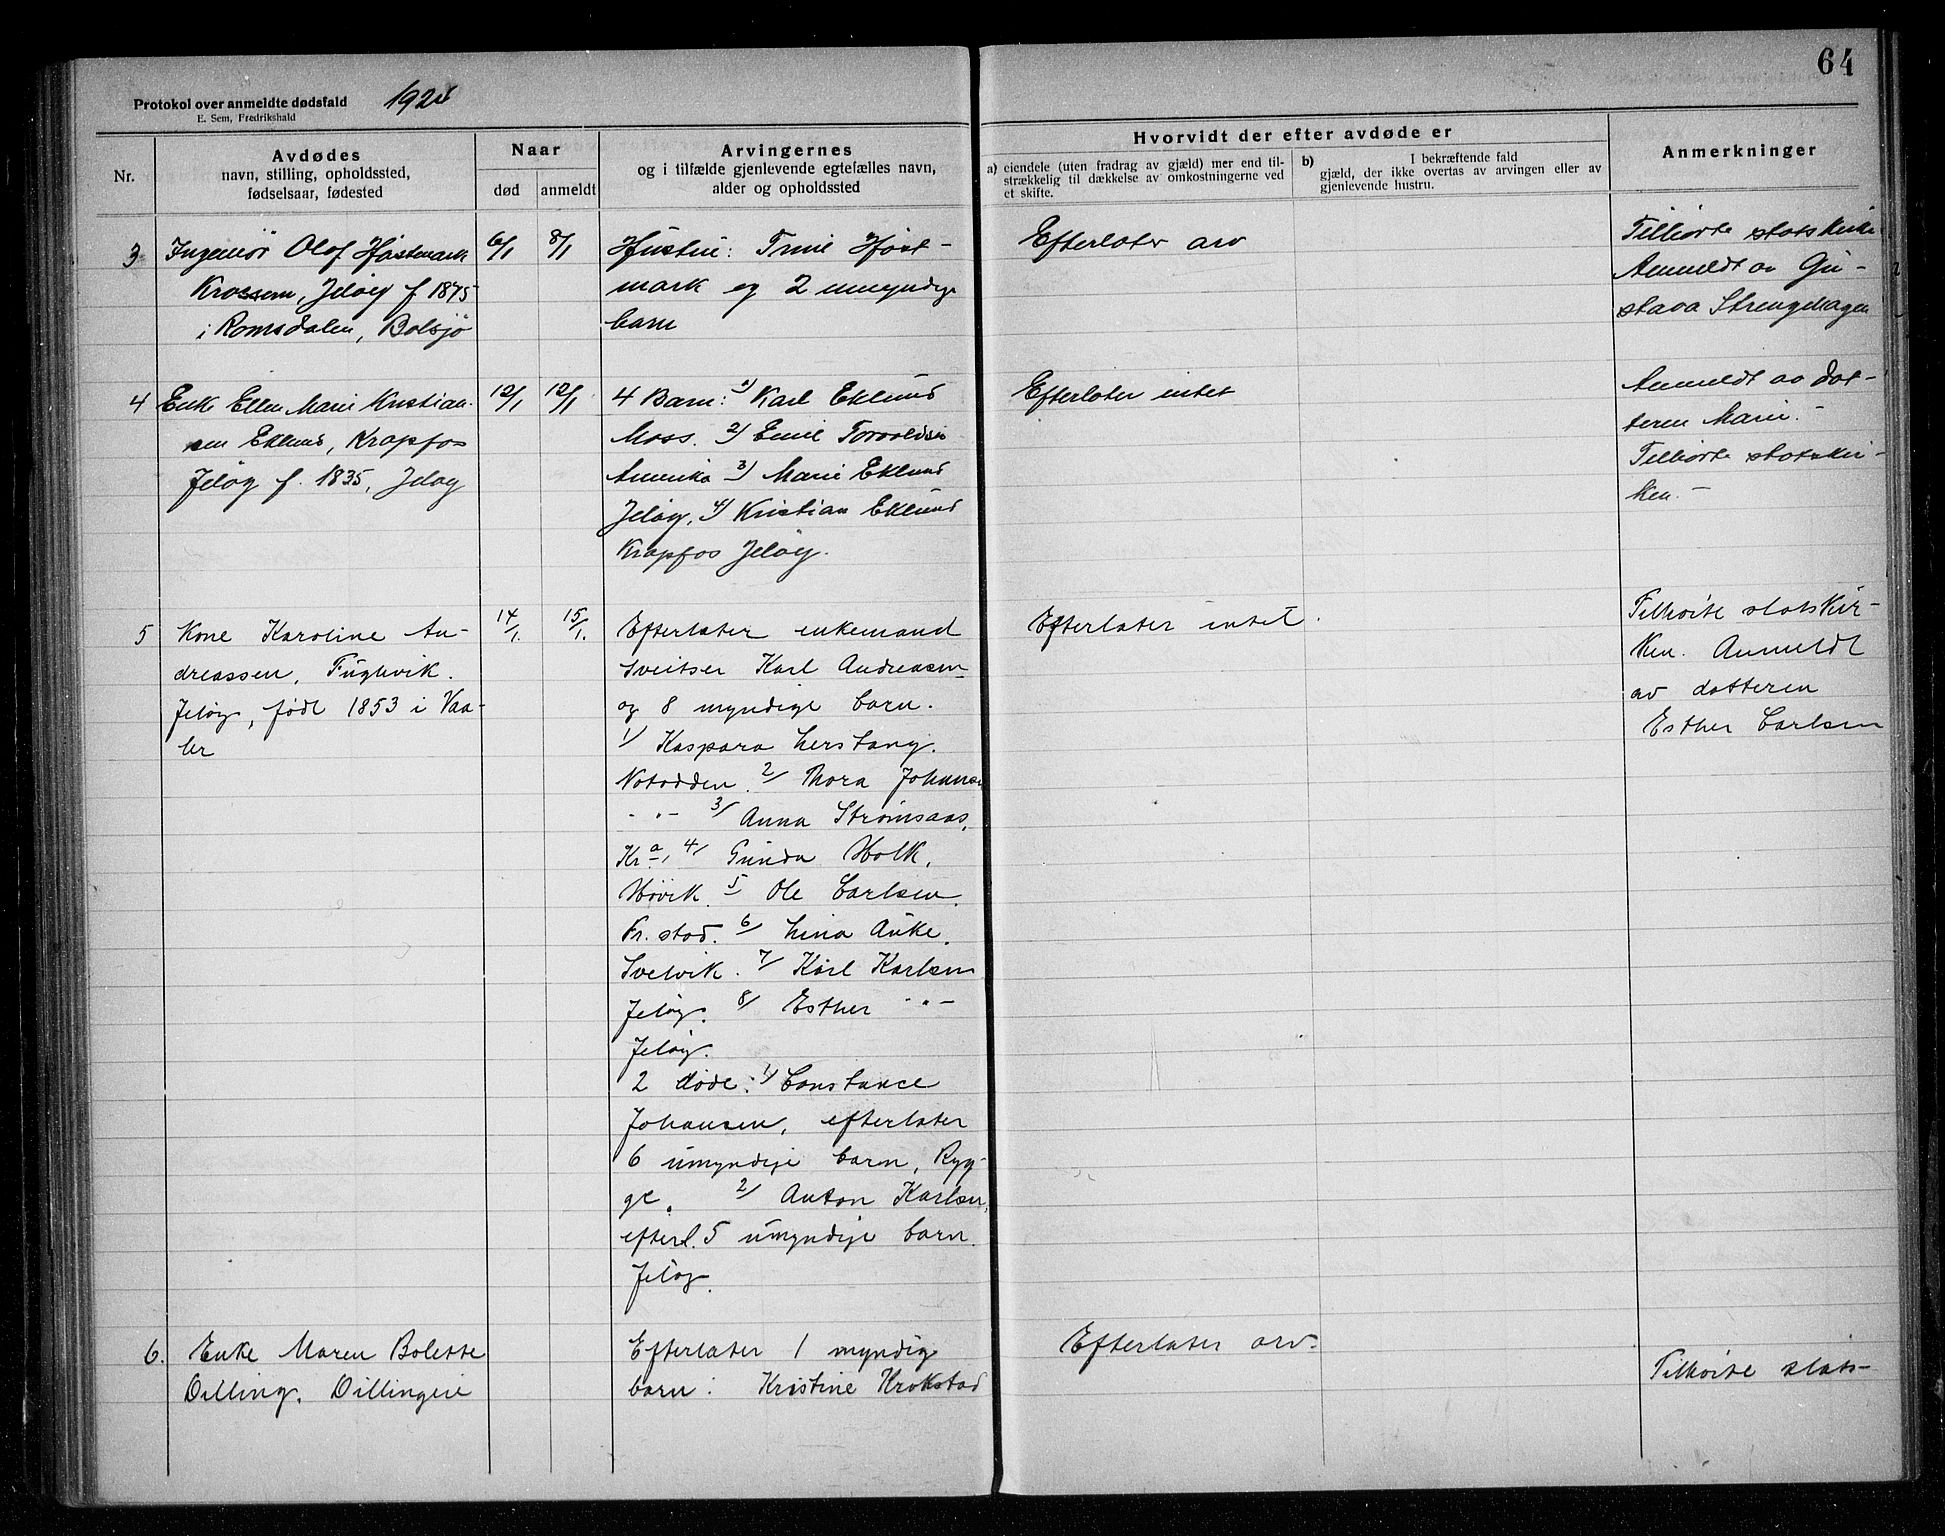 64
Protokol over anmeldte dødsfald
E. Sem, Fredrikshald
Nr.
Avdødes
navn, stilling, opholdssted,
fødselsaar, fødested
Naar
død
anmeldt
Arvingernes
og i tilfælde gjenlevende egtefælles navn,
alder og opholdssted
Hvorvidt der efter avdøde er
a) eiendele (uten fradrag av gjæld) mer end til-
strækkelig til dækkelse av omkostningerne ved
et skifte.
b) I bekræftende fald
gjæld, der ikke overtas av arvingen eller av
gjenlevende hustru.
Anmerkninger
3
Ingeniør Olof Hjostmark
Krossern, Jeløy f 1875
i Romsdalen, Bolsjø
6/1
8/1
Hustru: Trine Hjost-
mark og 2 umyndige
barn
Efterlater arv
Tilhørte statskirke
Anmeldt av Gu-
stava Strengehagen
4
Enke Ellen Marie Kristian-
sen Eklund, Krapfos
Jeløy f. 1835, Jeløy
12/1
12/1
4 Barn: 1) Karl Eklund
Moss. 2) Emil Torvaldsen
Amerika 3) Marie Eklund
Jeløy, 4) Kristian Eklund
Krapfos Jeløy.
Efterlater intet
Anmeldt av dat-
teren Marie. -
Tilhørte statskir-
ken. -
5
Kone Karoline An-
dreassen, Fuglevik.
Jeløy, født 1853 i Vaa-
ler
14/1.
15/1.
Efterlater enkemand
sveitser Karl Andreasen
og 8 myndige barn.
1/ Kaspara Lerstang.
Notodden. 2/ Thora Johansen
- " - 3/ Anna Strømsaas,
Kra, 4/ Gunda Holk,
Høvik. 5 Ole Carlsen.
Fr.stad. 6/ Lina Auke.
Svelvik. 7/ Karl Karlsen
Jeløy. 8/ Esther - " -
Jeløy.
2 døde: 1/ Constance
Johansen, efterlater
6 umyndige barn, Ryg-
ge. 2/ Anton Karlsen,
efterl. 5 umyndige barn.
Jeløy.
Efterlater intet.
Tilhørte statskir-
ken. Anmeldt
av datteren
Esther Carlsen
6.
Enke Maren Bolette
Dilling, Dillingøie
Efterlater 1 myndig
barn: Kristine Krokstad
Efterlater arv.
Tilhørte stats-